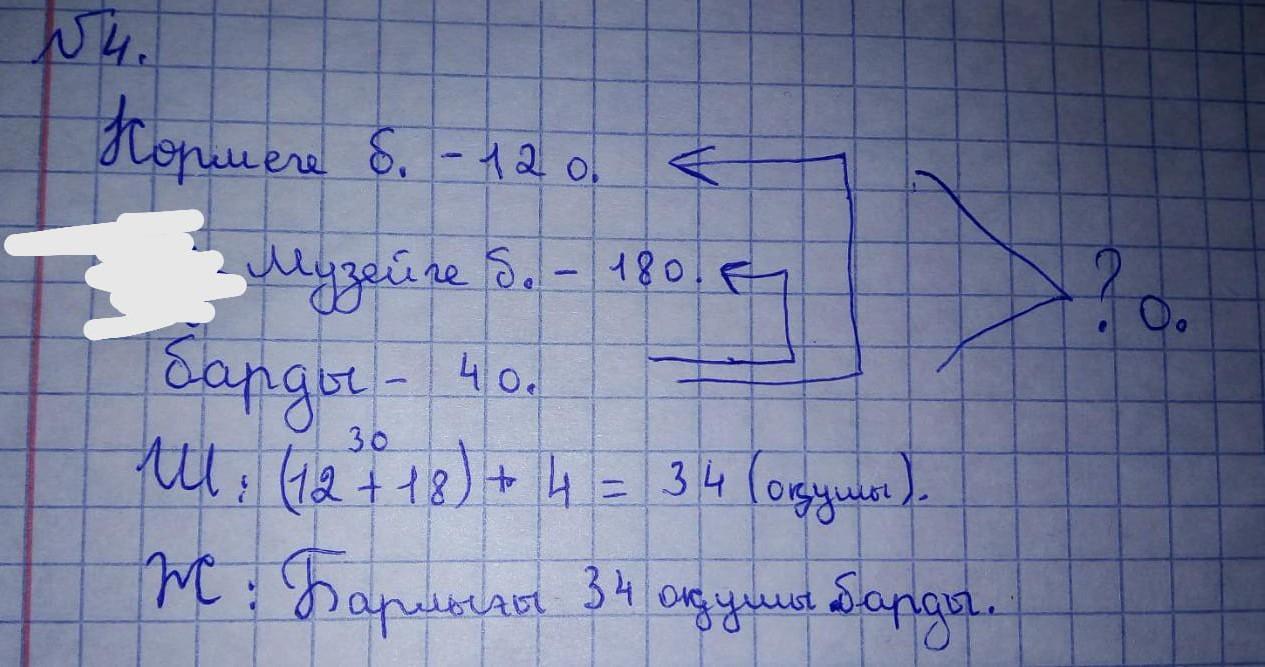 №4.
Көрмеге б. - 12 о.
Музейге б. - 18 о.
? о.
барды - 4 о.
30
Ш: (12 + 18) + 4 = 34 (оқушы).
Ж: Барлығы 34 оқушы барды.